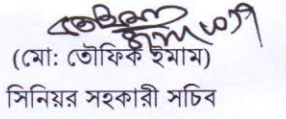 (মো: তৌফিক ইমাম)
সিনিয়র সহকারী সচিব